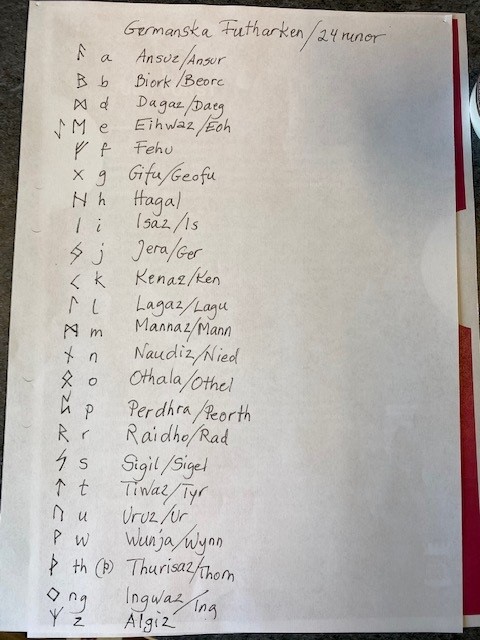 Germanska Futharken/24 runor
ᚨ a Ansuz/Ansur
ᛒ b Biork/Beorc
ᛞ d Dagaz/Daeg
ᛇ ᛖ e Eihwaz/Eoh
ᚠ f Fehu
ᚷ g Gifu/Geofu
ᚺ h Hagal
ᛁ i Isaz/Is
ᛃ j Jera/Ger
ᚲ k Kenaz/Ken
ᛚ l Lagaz/Lagu
ᛗ m Mannaz/Mann
ᚾ n Naudiz/Nied
ᛟ o Othala/Othel
ᛈ p Perdhra/Peorth
ᚱ r Raidho/Rad
ᛊ s Sigil/Sigel
ᛏ t Tiwaz/Tyr
ᚢ u Uruz/Ur
ᚹ w Wunja/Wynn
ᚦ th (þ) Thurisaz/Thorn
ᛜ ng Ingwaz/Ing
ᛉ z Algiz